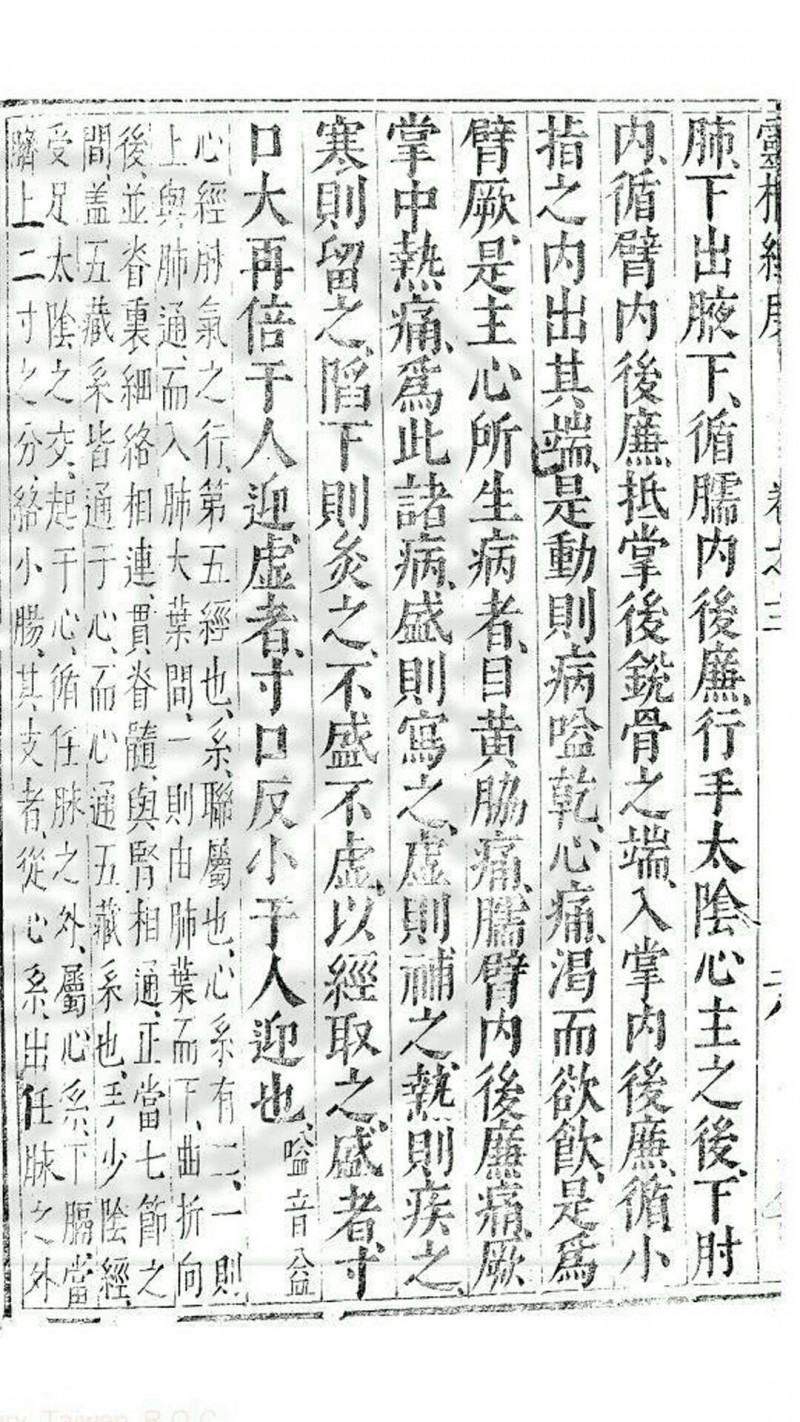 肺、下出腋下、循臑內後廉、行手太陰心主之後、下肘
內、循臂內後廉、抵掌後銳骨之端、入掌內後廉、循小
指之內出其端、是動則病嗌乾、心痛、渴而欲飲、是爲
臂厥、是主心所生病者、目黃脇痛、臑臂內後廉痛、厥
掌中熱痛、爲此諸病、盛則寫之、虛則補之、熱則疾之、
寒則留之、陷下則灸之、不盛不虛、以經取之、盛者、寸
口大再倍于人迎、虛者、寸口反小于人迎也、嗌音益
心經脉氣之行、第五經也、系、聯屬也、心系有二、一則
上與肺通、而入肺大葉間、一則由肺葉而下、曲折向
後、並脊裏細絡相連、貫脊髓、與腎相通、正當七節之
間、蓋五藏系皆通于心、而心通五藏系也、手少陰經、
受足太陰之交、起于心、循任脉之外、屬心系、下膈、當
臍上二寸之分、絡小腸、其支者、從心系、出任脉之外